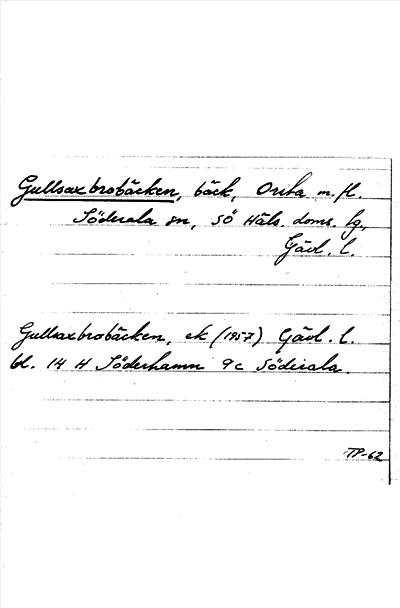 Gullsaxbrobäcken, bäck, Orsta m. fl.
Söderala sn, SÖ Häls. doms. lg,
Gävl. l.
Gullsaxbrobäcken, ek (1957) Gävl. l.
bl. 14 H Söderhamn 9 c Söderala.
TP-62